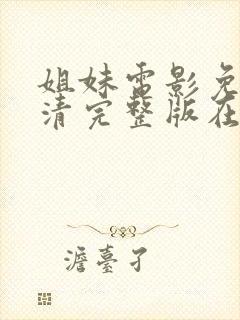 姐妹电影免
清完整版在
澹台孑